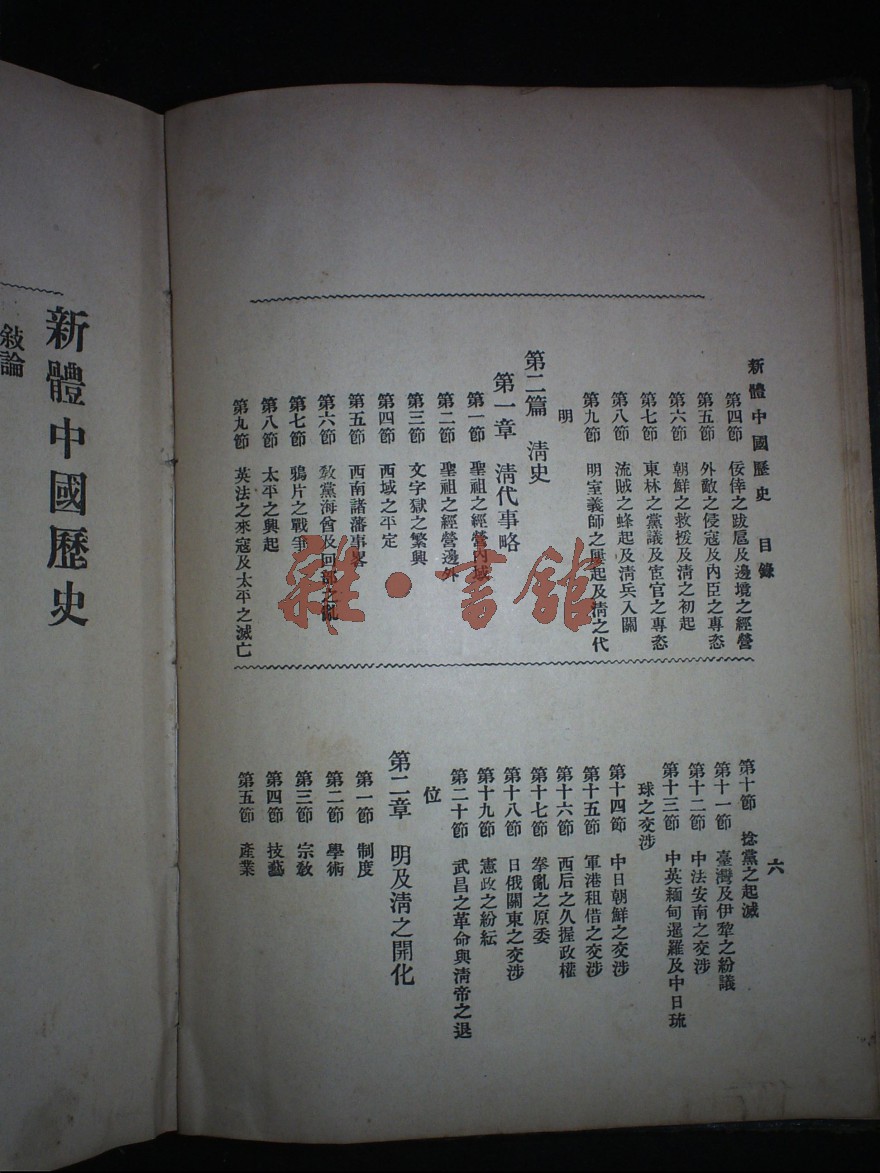 新體中國歷史 目錄
六
第四節 佞倖之跋扈及邊境之經營
第五節 外敵之侵寇及內臣之專恣
第六節 朝鮮之救援及清之初起
第七節 東林之黨議及宦官之專恣
第八節 流賊之蜂起及清兵入關
第九節 明室義師之屢起及清之代
明
第二篇 清史
第一章 清代事略
第一節 聖祖之經營內域
第二節 聖祖之經營邊外
第三節 文字獄之繁興
第四節 西域之平定
第五節 西南諸藩事畧
第六節 敎黨海酋及回部之亂
第七節 鴉片之戰爭
第八節 太平之興起
第九節 英法之來寇及太平之滅亡
第十節 捻黨之起滅
第十一節 臺灣及伊犂之紛議
第十二節 中法安南之交涉
第十三節 中英緬甸暹羅及中日琉
球之交涉
第十四節 中日朝鮮之交涉
第十五節 軍港租借之交涉
第十六節 西后之久握政權
第十七節 拳亂之原委
第十八節 日俄關東之交涉
第十九節 憲政之紛紜
第二十節 武昌之革命與清帝之退
位
第二章 明及清之開化
第一節 制度
第二節 學術
第三節 宗敎
第四節 技藝
第五節 產業
新體中國歷史
敍論
雜·書館